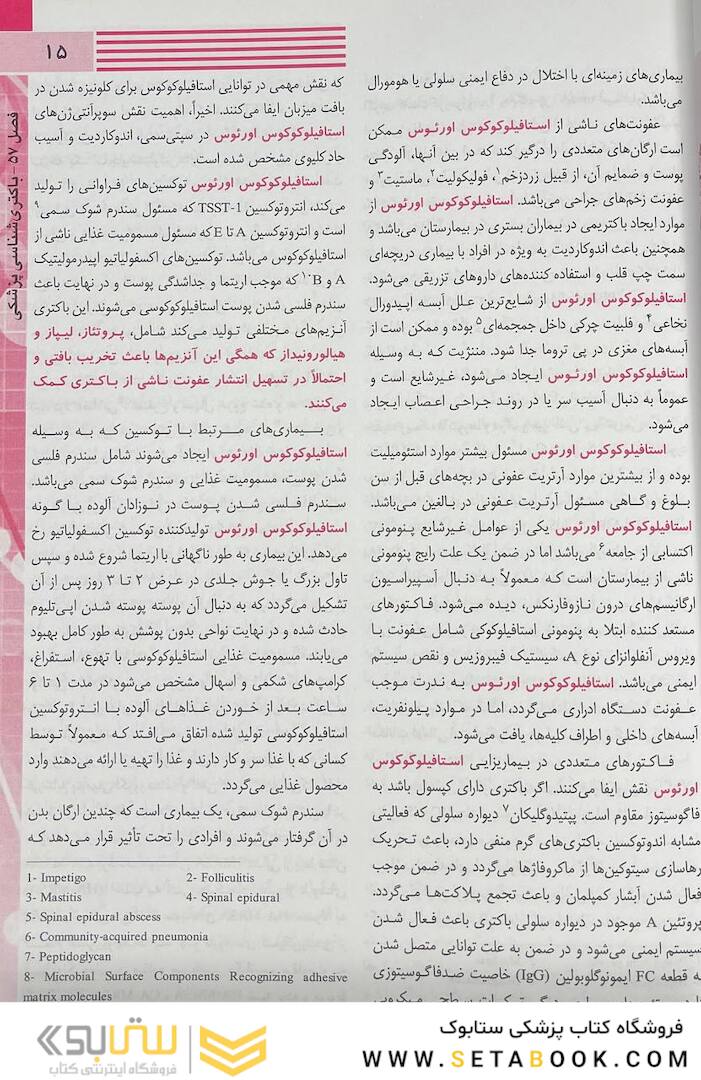 ۱۵
فصل ۵۷ - باکتری‌شناسی پزشکی
بیماری‌های زمینه‌ای با اختلال در دفاع ایمنی سلولی یا هومورال
می‌باشد.
عفونت‌های ناشی از استافیلوکوکوس اورئوس ممکن
است ارگان‌های متعددی را درگیر کند که در بین آنها، آلودگی
پوست و ضمایم آن، از قبیل زردزخم۱، فولیکولیت۲، ماستیت۳ و
عفونت زخم‌های جراحی می‌باشد. استافیلوکوکوس اورئوس از
موارد ایجاد باکتریمی در بیماران بستری در بیمارستان می‌باشد و
همچنین باعث اندوکاردیت به ویژه در افراد با بیماری دریچه‌ای
سمت چپ قلب و استفاده کننده‌های داروهای تزریقی می‌شود.
استافیلوکوکوس اورئوس از شایع‌ترین علل آبسه اپیدورال
نخاعی۴ و فلبیت چرکی داخل جمجمه‌ای۵ بوده و ممکن است از
آبسه‌های مغزی در پی تروما جدا شود. مننژیت که به وسیله
استافیلوکوکوس اورئوس ایجاد می‌شود، غیرشایع است و
عموماً به دنبال آسیب سر یا در روند جراحی اعصاب ایجاد
می‌شود.
استافیلوکوکوس اورئوس مسئول بیشتر موارد استئومیلیت
بوده و از بیشترین موارد آرتریت عفونی در بچه‌های قبل از سن
بلوغ و گاهی مسئول آرتریت عفونی در بالغین می‌باشد.
استافیلوکوکوس اورئوس یکی از عوامل غیرشایع پنومونی
اکتسابی از جامعه۶ می‌باشد اما در ضمن یک علت رایج پنومونی
ناشی از بیمارستان است که معمولاً به دنبال آسپیراسیون
ارگانیسم‌های درون نازوفارنکس، دیده می‌شود. فاکتورهای
مستعد کننده ابتلا به پنومونی استافیلوکوکی شامل عفونت با
ویروس آنفلوانزای نوع A، سیستیک فیبروزیس و نقص سیستم
ایمنی می‌باشد. استافیلوکوکوس اورئوس به ندرت موجب
عفونت دستگاه ادراری می‌گردد، اما در موارد پیلونفریت،
آبسه‌های داخلی و اطراف کلیه‌ها، یافت می‌شود.
فاکتورهای متعددی در بیماریزایی استافیلوکوکوس
اورئوس نقش ایفا می‌کنند. اگر باکتری دارای کپسول باشد به
فاگوسیتوز مقاوم است. پپتیدوگلیکان۷ دیواره سلولی که فعالیتی
مشابه اندوتوکسین باکتری‌های گرم منفی دارد، باعث تحریک
رهاسازی سیتوکین‌ها از ماکروفاژها می‌گردد و در ضمن موجب
فعال شدن آبشار کمپلمان و باعث تجمع پلاکت‌ها می‌گردد.
پروتئین A موجود در دیواره سلولی باکتری باعث فعال شدن
سیستم ایمنی می‌شود و در ضمن به علت توانایی متصل شدن
به قطعه FC ایمونوگلوبولین (IgG) خاصیت ضدفاگوسیتوزی
که نقش مهمی در توانایی استافیلوکوکوس برای کلونیزه شدن در
بافت میزبان ایفا می‌کنند. اخیراً، اهمیت نقش سوپرآنتی‌ژن‌های
استافیلوکوکوس اورئوس در سپتی‌سمی، اندوکاردیت و آسیب
حاد کلیوی مشخص شده است.
استافیلوکوکوس اورئوس توکسین‌های فراوانی را تولید
می‌کند، انتروتوکسین TSST-1 که مسئول سندرم شوک سمی۹
است و انتروتوکسین A تا E که مسئول مسمومیت غذایی ناشی از
استافیلوکوکوس می‌باشد. توکسین‌های اکسفولیاتیو اپیدرمولیتیک
A و B۱۰ که موجب اریتما و جداشدگی پوست و در نهایت باعث
سندرم فلسی شدن پوست استافیلوکوکوسی می‌شوند. این باکتری
آنزیم‌های مختلفی تولید می‌کند شامل، پروتئاز، لیپاز و
هیالورونیداز که همگی این آنزیم‌ها باعث تخریب بافتی و
احتمالاً در تسهیل انتشار عفونت ناشی از باکتری کمک
می‌کنند.
بیماری‌های مرتبط با توکسین که به وسیله
استافیلوکوکوس اورئوس ایجاد می‌شوند شامل سندرم فلسی
شدن پوست، مسمومیت غذایی و سندرم شوک سمی می‌باشد.
سندرم فلسی شدن پوست در نوزادان آلوده با گونه
استافیلوکوکوس اورئوس تولیدکننده توکسین اکسفولیاتیو رخ
می‌دهد. این بیماری به طور ناگهانی با اریتما شروع شده و سپس
تاول بزرگ یا جوش جلدی در عرض ۲ تا ۳ روز پس از آن
تشکیل می‌گردد که به دنبال آن پوسته پوسته شدن اپی‌تلیوم
حادث شده و در نهایت نواحی بدون پوشش به طور کامل بهبود
می‌یابند. مسمومیت غذایی استافیلوکوکوسی با تهوع، استفراغ،
کرامپ‌های شکمی و اسهال مشخص می‌شود در مدت ۱ تا ۶
ساعت بعد از خوردن غذاهای آلوده با انتروتوکسین
استافیلوکوکوسی تولید شده اتفاق می‌افتد که معمولاً توسط
کسانی که با غذا سر و کار دارند و غذا را تهیه یا ارائه می‌دهند وارد
محصول غذایی می‌گردد.
سندرم شوک سمی، یک بیماری است که چندین ارگان بدن
در آن گرفتار می‌شوند و افرادی را تحت تأثیر قرار می‌دهد که
1- Impetigo 2- Folliculitis
3- Mastitis 4- Spinal epidural
5- Spinal epidural abscess
6- Community-acquired pneumonia
7- Peptidoglycan
8- Microbial Surface Components Recognizing adhesive
matrix molecules
ستابوک
فروشگاه اینترنتی کتاب
فروشگاه کتاب پزشکی ستابوک
WWW.SETABOOK.COM